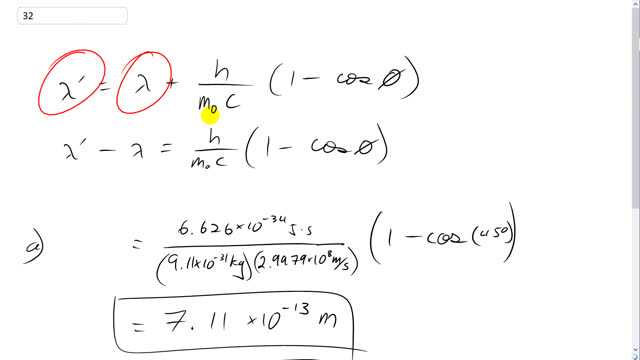 32
λ' = λ + h / m₀c (1 − cos ø)
λ' − λ = h / m₀c (1 − cos ø)
a) = 6.626×10⁻³⁴ J·s / (9.11×10⁻³¹ kg)(2.9979×10⁸ m/s) (1 − cos(45°))
= 7.11 ×10⁻¹³ m